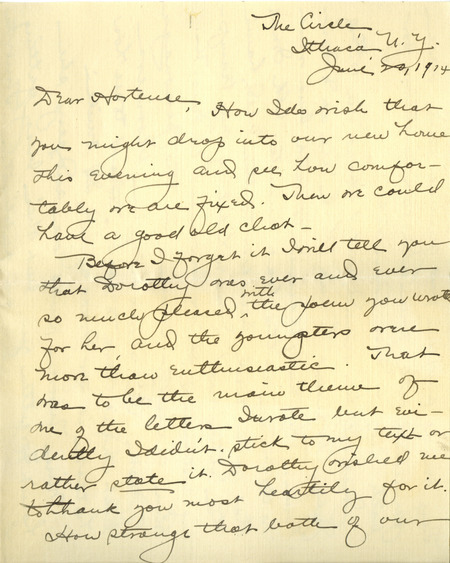 The Circle
Ithaca N.Y.
June 20, 1914
Dear Hortense, How I do wish that
you might drop into our new home
this evening and see how comfor-
tably we are fixed. Then we could
have a good old chat -
Before I forget it I will tell you
that Dorothy was ever and ever
so much pleased with the poem you wrote
for her and the youngsters were
more than enthusiastic. That
was to be the main theme of
one of the letters I wrote but evi-
dently I didn't stick to my text or
rather state it. Dorothy wished me
to thank you most heartily for it.
How strange that both of our